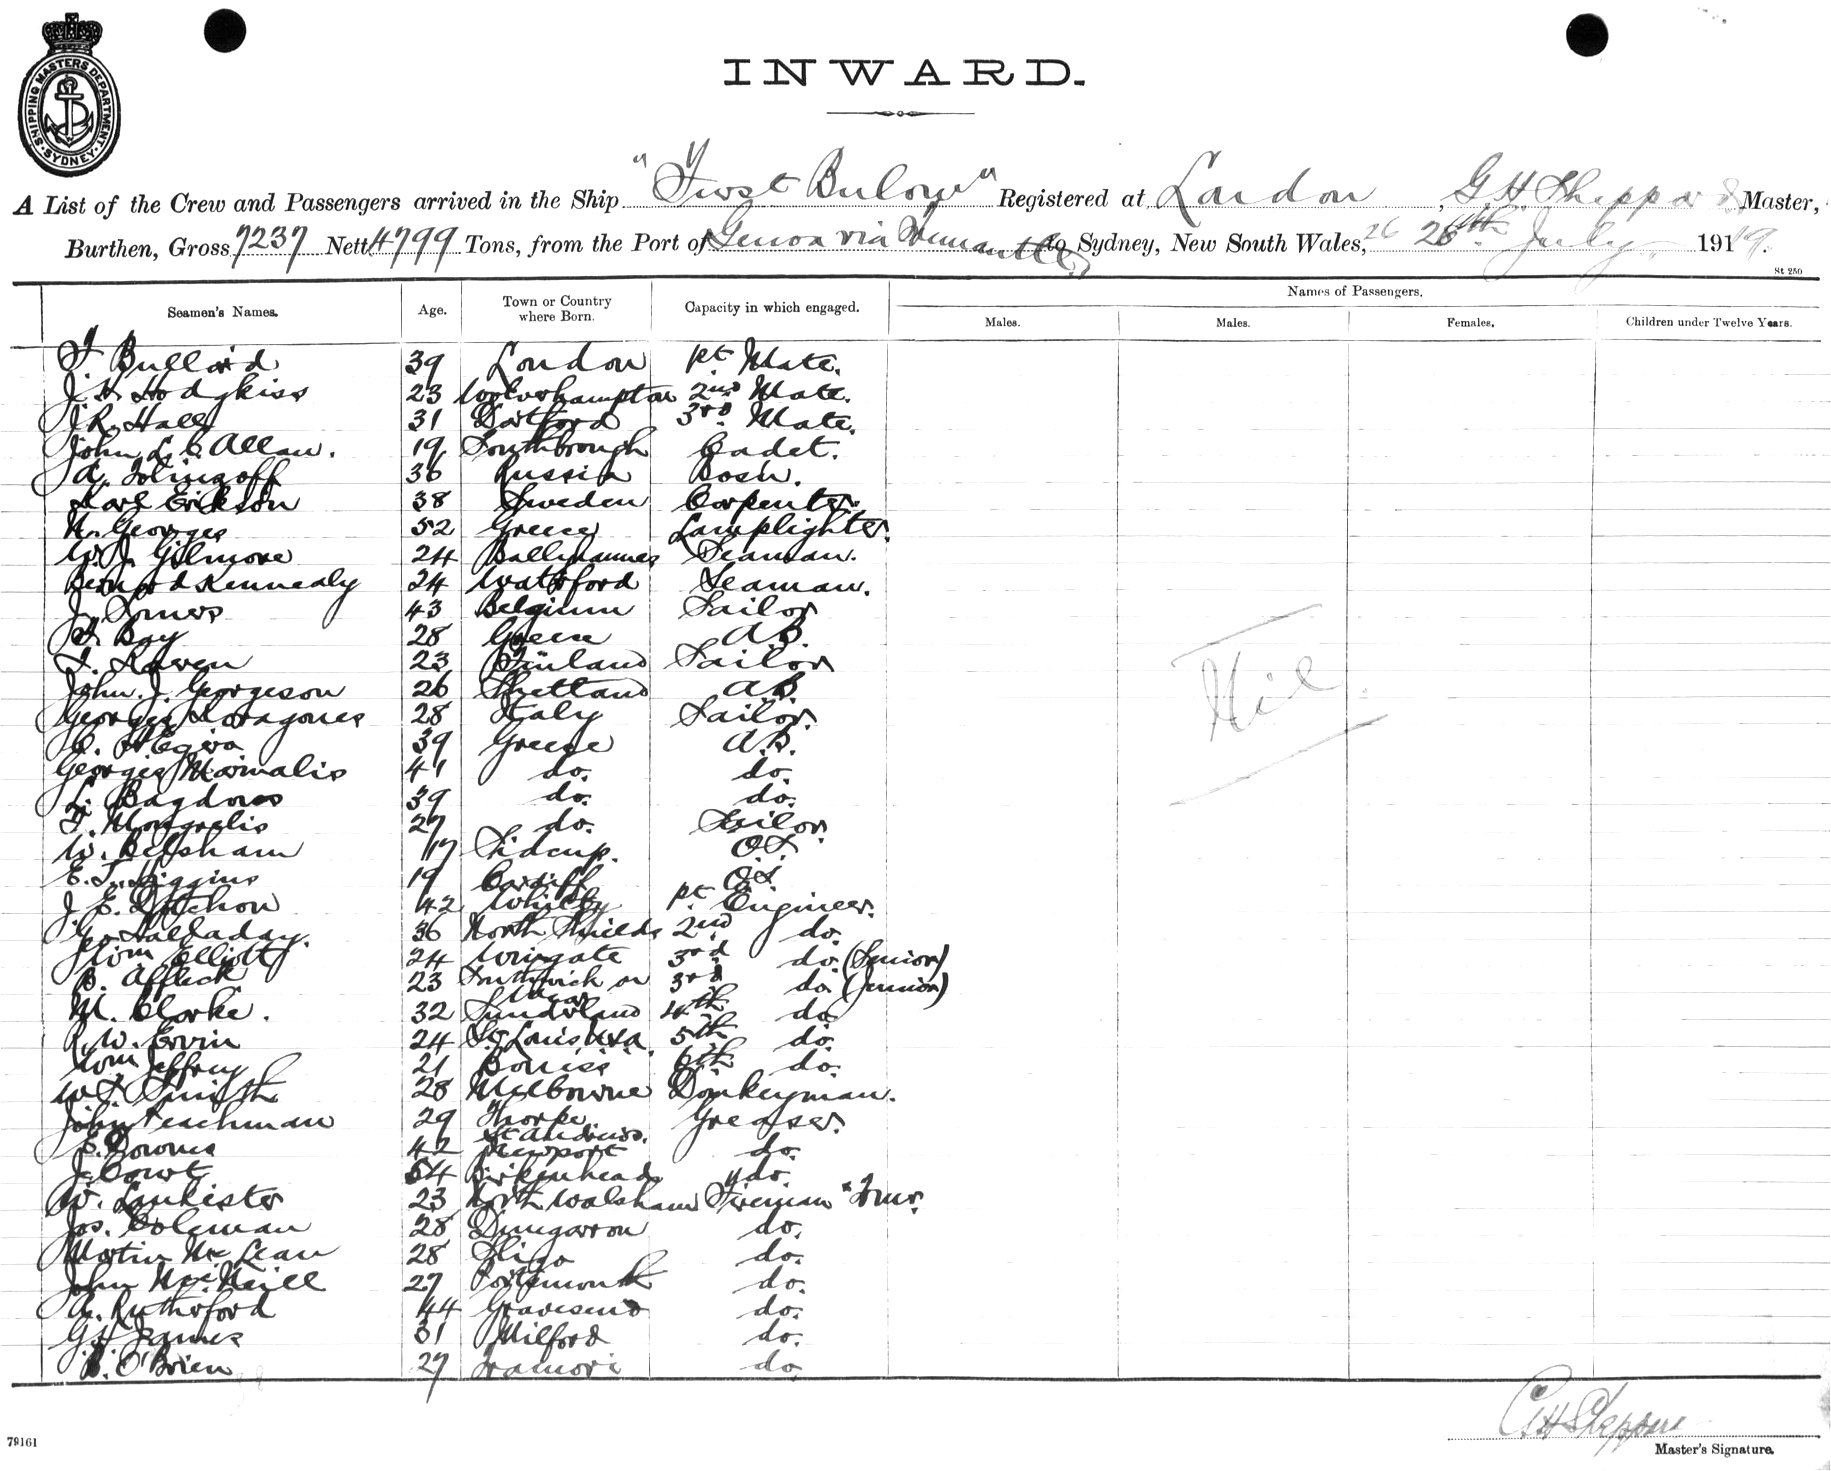 SHIPPING MASTERS DEPARTMENT. SYDNEY.
INWARD.
A List of the Crew and Passengers arrived in the Ship "Furst Bulow" Registered at London, G H Sheppard Master,
Burthen, Gross 7237 Nett 4799 Tons, from the Port of Genoa via Fremantle to Sydney, New South Wales, 26 26th July 1919.
St 250
Seamen's Names. Age. Town or Country where Born. Capacity in which engaged. Names of Passengers.
Males. Males. Females. Children under Twelve Years.
F. Bullard 39 London 1st Mate.
J. H. Hodgkiss 23 Wolverhampton 2nd Mate.
J. R. Hall 31 Dartford 3rd Mate.
John L. C. Allan. 19 Southborough Cadet.
A. 36 Russia Bosn.
Karl Erikson 38 Sweden Carpenter.
N. Georges 52 Greece Lamplighter.
W. J. Gilmore 24 Seaman.
Bernard Kennealy 24 Waterford Seaman.
J. Somers 43 Belgium Sailor
Bay 28 Greece A.B.
23 Finland Sailor
John. J. Georgeson 26 Shetland A.B.
Georges 28 Italy Sailor.
39 Greece A.B.
Georgis 41 do. do.
L. 39 do. do.
27 do. Sailor.
W. Belsham 17 Sidcup. O.S.
E. J. Higgins 19 Cardiff O.S.
J. E. Ditchon 42 Whitby 1st Engineer.
G. Halladay. 36 North Shields 2nd do.
Wm Elliott 24 Wingate 3rd do. (Senior)
B. Affleck 23 Southwick on Wear 3rd do. (Junior)
M. Clarke. 32 Sunderland 4th do.
R. W. Ervin 24 St. Louis USA. 5th do.
Wm Jeffrey 21 6th do.
W. S. Smith 28 Melbourne Donkeyman.
John Peachman 29 Thorpe St Andrews. Greaser.
E. Downs 42 Newport do.
J. Court 54 Birkenhead do.
W. 23 North Walsham Fireman & Tmr.
Jos. Coleman 28 Dungarvon do.
Martin Mc Lean 28 Sligo do.
John Mc Neill 27 Portsmouth do.
A. Rutherford 44 Gravesend do.
G. H. James 31 Milford do.
B. O'Brien 27 Tramori do.
Nil.
G H Sheppard
79161
Master's Signature.